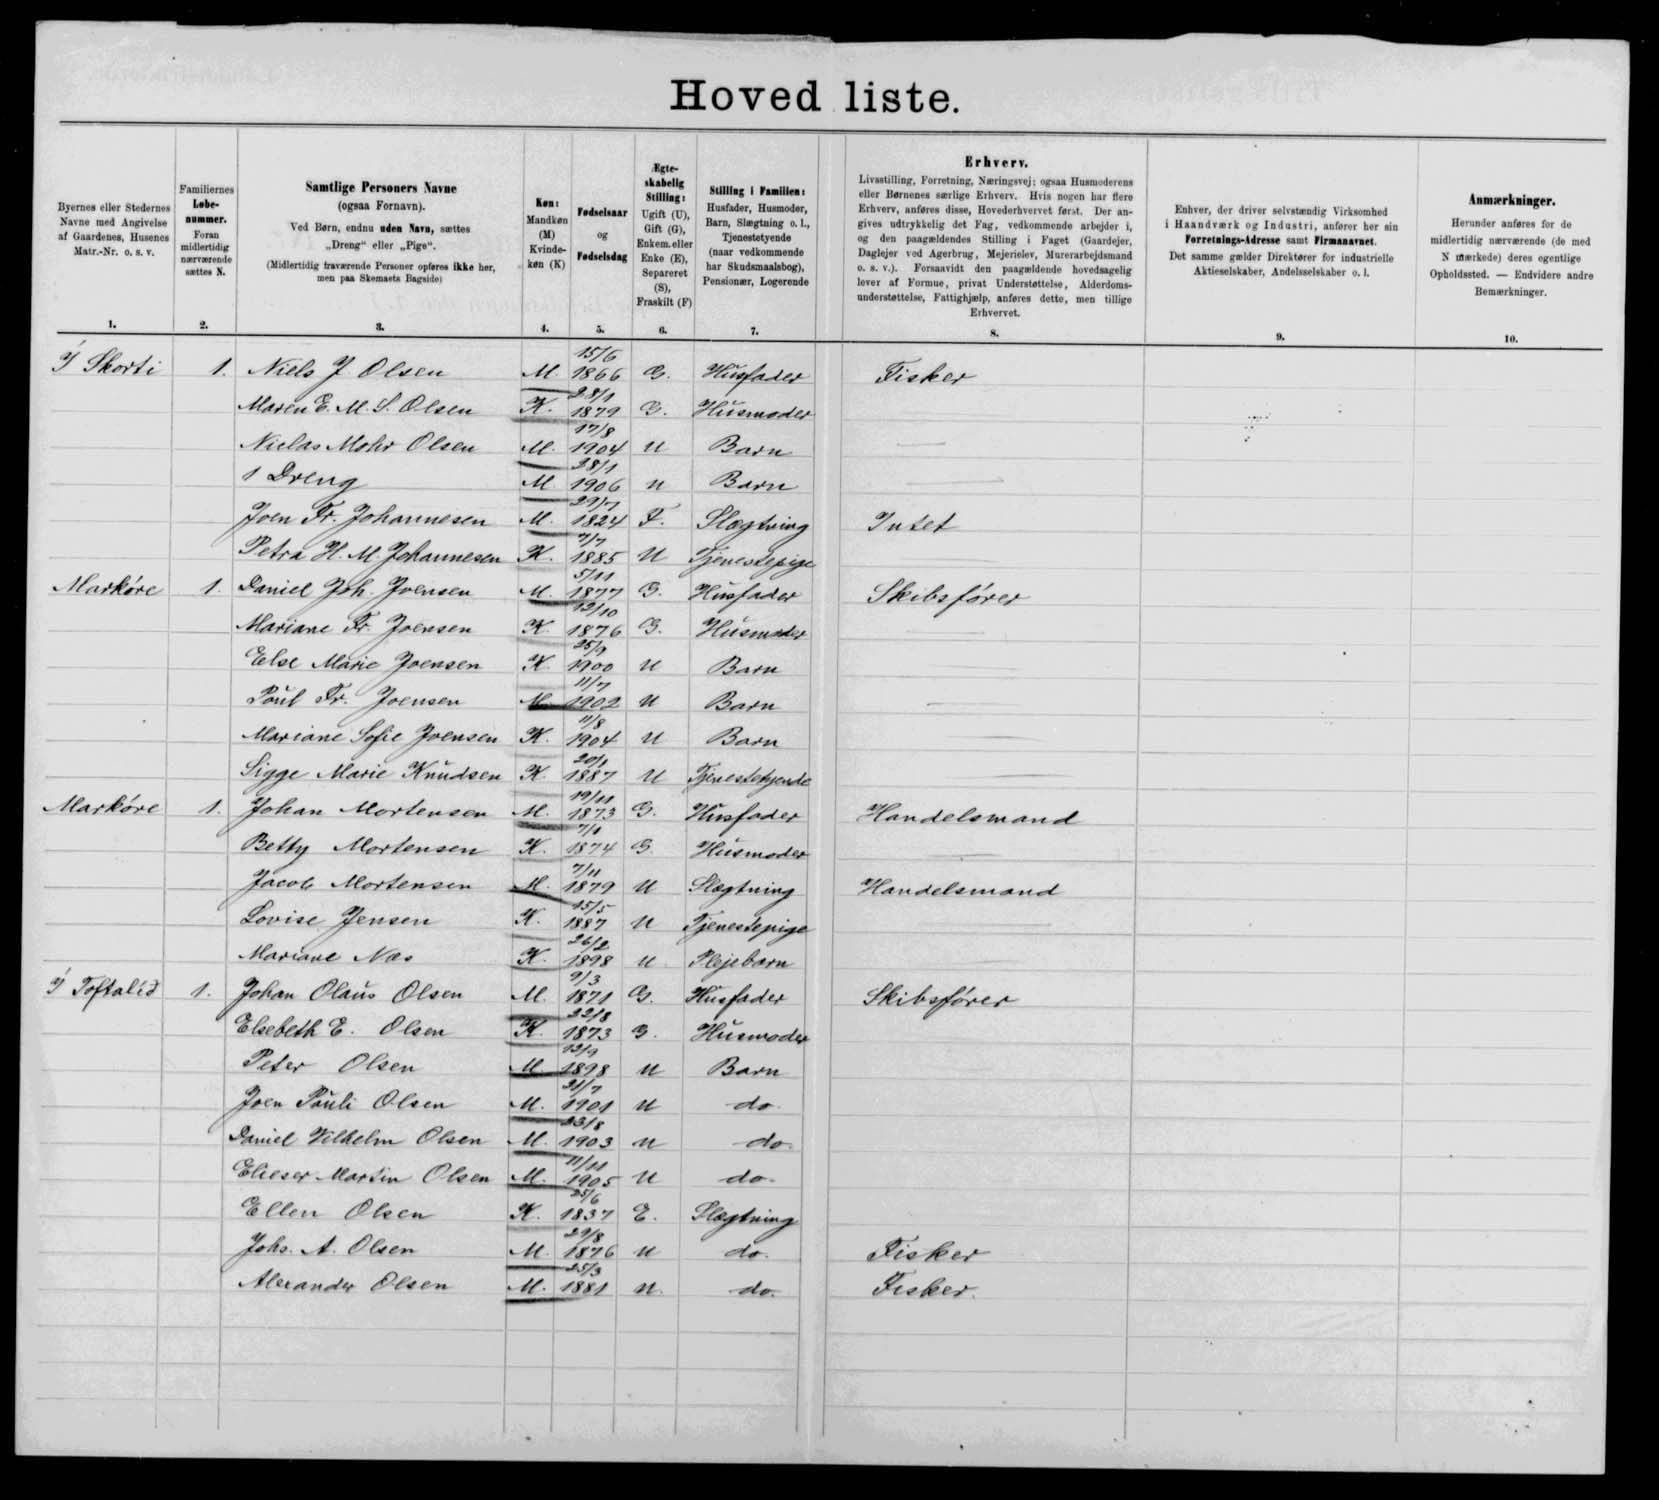 Hoved liste.
Byernes eller Stedernes Navne med Angivelse af Gaardenes, Husenes Matr.-Nr. o. s. v.
Familiernes Løbe-nummer. Foran midlertidig nærværende sættes N.
Samtlige Personers Navne (ogsaa Fornavn). Ved Børn, endnu uden Navn, sættes „Dreng" eller „Pige". (Midlertidig fraværende Personer opføres ikke her, men paa Skemaets Bagside)
Køn: Mandkøn (M) Kvinde-køn (K)
Fødselsaar og Fødselsdag
Ægte-skabelig Stilling: Ugift (U), Gift (G), Enkem. eller Enke (E), Separeret (S), Fraskilt (F)
Stilling i Familien: Husfader, Husmoder, Barn, Slægtning o. l., Tjenestetyende (naar vedkommende har Skudsmaalsbog), Pensionær, Logerende
Erhverv. Livsstilling, Forretning, Næringsvej; ogsaa Husmoderens eller Børnenes særlige Erhverv. Hvis nogen har flere Erhverv, anføres disse, Hovederhvervet først. Der an-gives udtrykkelig det Fag, vedkommende arbejder i, og den paagældendes Stilling i Faget (Gaardejer, Daglejer ved Agerbrug, Mejerielev, Murerarbejdsmand o. s. v.). Forsaavidt den paagældende hovedsagelig lever af Formue, privat Understøttelse, Alderdoms-understøttelse, Fattighjælp, anføres dette, men tillige Erhvervet.
Enhver, der driver selvstændig Virksomhed i Haandværk og Industri, anfører her sin Forretnings-Adresse samt Firmanavnet. Det samme gælder Direktører for industrielle Aktieselskaber, Andelsselskaber o. l.
Anmærkninger. Herunder anføres for de midlertidig nærværende (de med N mærkede) deres egentlige Opholdssted. — Endvidere andre Bemærkninger.
1. 2. 3. 4. 5. 6. 7. 8. 9. 10.
Í Skorti 1. Niels J Olsen M. 15/6 1866 G. Husfader Fisker
Maren E. M. S. Olsen K. 28/1 1879 G. Husmoder
Niclas Mohr Olsen M. 17/8 1904 U Barn
1 Dreng M 28/1 1906 U Barn
Joen Fr. Johannesen M. 29/7 1824 F. Slægtning Intet
Petra H. M. Johannesen K. 7/7 1885 U Tjenestepige
Markøre 1. Daniel Joh. Joensen M. 5/11 1877 G. Husfader Skibsfører
Mariane Fr. Joensen K. 12/10 1876 G. Husmoder
Else Marie Joensen K. 25/9 1900 U Barn
Poul Fr. Joensen M. 11/7 1902 U Barn
Mariane Sofie Joensen K. 11/8 1904 U Barn
Sigge Marie Knudsen K. 20/1 1887 U Tjenestetyende
Markøre 1. Johan Mortensen M. 19/11 1873 G. Husfader Handelsmand
Betty Mortensen K. 7/1 1874 G. Husmoder
Jacob Mortensen M. 7/11 1879 U Slægtning Handelsmand
Lovise Jensen K. 15/5 1887 U Tjenestepige
Mariane Næs K. 26/2 1898 U Plejebarn
Í Toftalid 1. Johan Olaus Olsen M. 9/3 1871 G. Husfader Skibsfører
Elsebeth E. Olsen K. 22/8 1873 G. Husmoder
Peter Olsen M. 12/9 1898 U Barn
Joen Pauli Olsen M. 21/7 1901 U do.
Daniel Vilhelm Olsen M. 23/8 1903 U do.
Elieser Martin Olsen M. 11/11 1905 U do.
Ellen Olsen K. 25/6 1837 E. Slægtning
Johs. A. Olsen M. 29/8 1876 U do. Fisker
Alexander Olsen M. 25/3 1881 U. do. Fisker.